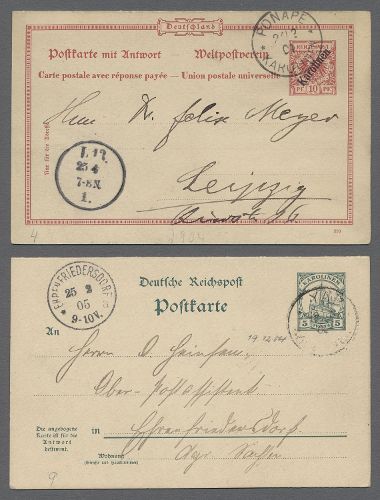 Deutschland
Postkarte mit Antwort Weltpostverein
Carte postale avec réponse payée — Union postale universelle
REICHSPOST
PF 10 PF
Karolinen
PONAPE
KAROLINEN
Herrn Dr. Felix Meyer
Leipzig
L 13.
25 4
7-8 N.
1.
4
Deutsche Reichspost
Postkarte
KAROLINEN
5 5
EHRENFRIEDERSDORF
25 2
05
9-10V.
An
19 12 04
Herrn O. Heinhain,
Ober-Postassistent
in Ehrenfriedersdorf
Kgr. Sachsen
Die angebogene
Karte ist für die
Antwort
bestimmt.
Wohnung
(Straße und Hausnummer)
9